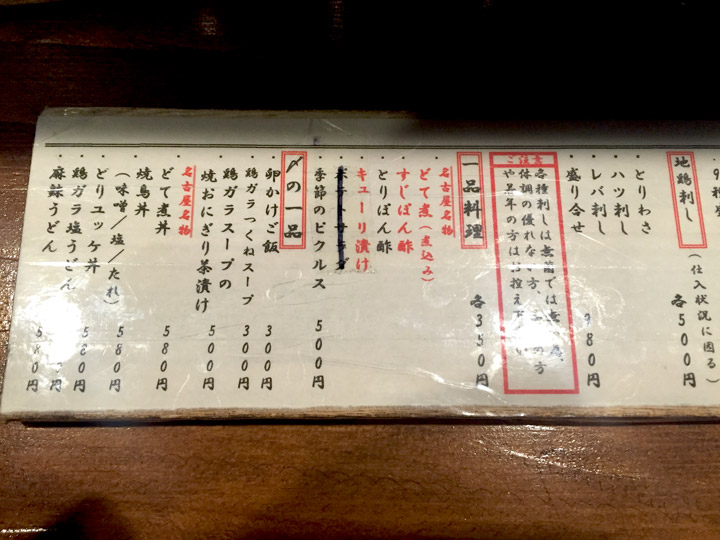 地鶏刺し
(仕入状況に困る)
各500円
・とりわさ
・ハツ刺し
・レバ刺し
・盛り合せ
980円
ご注意
各種刺しは無菌では無
体調の優れない方、
の方
や若年の方は
控え下
一品料理
各350円
名古屋名物
・どて煮(煮込み)
・すじぽん酢
・とりぽん酢
・キューリ漬け
・季節のピクルス 500円
〆の一品
・卵かけご飯 300円
・鶏ガラつくねスープ 300円
・鶏ガラスープの
焼おにぎり茶漬け 500円
名古屋名物
・どて煮丼 580円
・焼鳥丼
(味噌/塩/たれ) 580円
・どりユッケ丼 580円
・鶏ガラ塩うどん
・麻辣うどん 580円